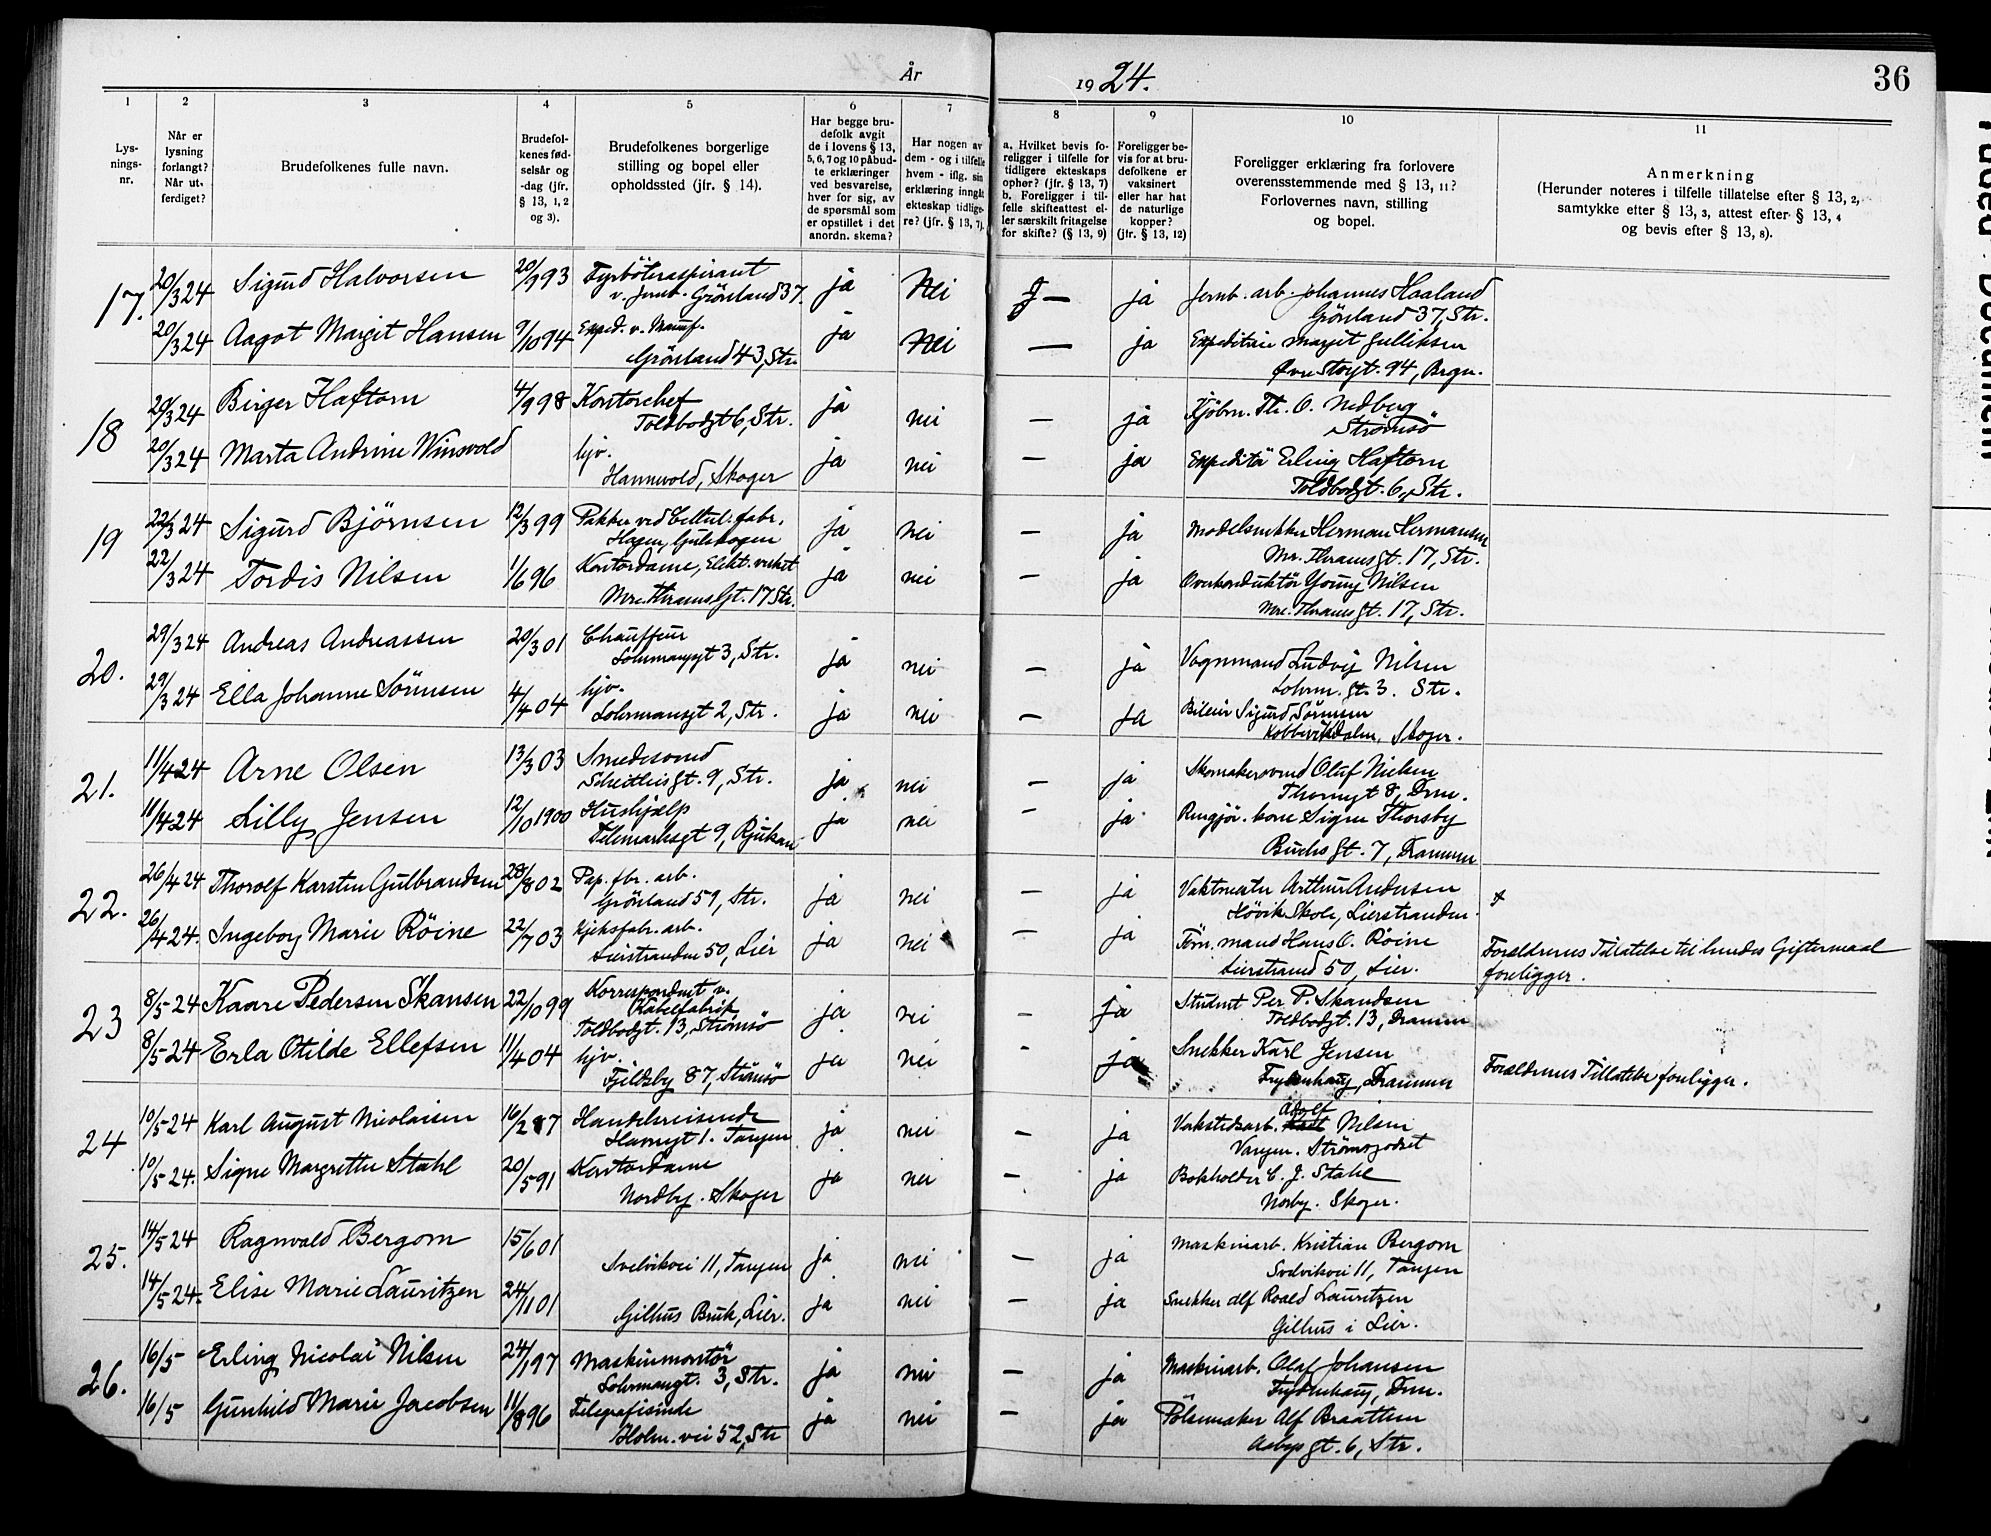 År 1924.
36
1 2 3 4 5 6 7 8 9 10 11
Lys-
nings-
nr.
Når er
lysning
forlangt?
Når ut-
ferdiget?
Brudefolkenes fulle navn.
Brudefol-
kenes fød-
selsår og
-dag (jfr.
§ 13, 1, 2
og 3).
Brudefolkenes borgerlige
stilling og bopel eller
opholdssted (jfr. § 14).
Har begge bru-
defolk avgit
de i lovens § 13,
5, 6, 7 og 10 påbud-
te erklæringer
ved besvarelse,
hver for sig, av
de spørsmål som
er opstillet i det
anordn. skema?
Har nogen av
dem - og i tilfelle
hvem - iflg. sin
erklæring inngått
ekteskap tidlige-
re? (jfr. § 13, 7).
a. Hvilket bevis fo-
religger i tilfelle for
tidligere ekteskaps
ophør? (jfr. § 13, 7)
b. Foreligger i til-
felle skifteattest el-
ler særskilt fritagelse
for skifte? (§ 13, 9)
Foreligger be-
vis for at bru-
defolkene er
vaksinert
eller har hat
de naturlige
kopper?
(jfr. § 13, 12)
Foreligger erklæring fra forlovere
overensstemmende med § 13, 11?
Forlovernes navn, stilling
og bopel.
Anmerkning
(Herunder noteres i tilfelle tillatelse efter § 13, 2,
samtykke efter § 13, 3, attest efter § 13, 4
og bevis efter § 13, 8).
17. 20/3 24 Sigurd Halvorsen 20/9 93 Fyrböteraspirant ja Nei — ja Jernb. arb. Johannes Haaland
v. Jernb. Grönland 37. Grönland 37, Str.
20/3 24 Aagot Margit Hansen 9/10 94 Exped. v. Manuf. ja Nei — ja Expeditrice Margit Gulliksen
Grönland 43, Str. Øvre Storgt. 94, Brgn.
18 20/3 24 Birger Haftorn 4/9 98 Kontorchef ja nei — ja Kjöbm. Th. O. Nedberg
Toldbodgt 6, Str. Strömsö
20/3 24 Marta Andrine Winsvold hjv. ja nei — ja Expeditör Erling Haftorn
Hannevold, Skoger Toldbodgt. 6, Str.
19 22/3 24 Sigurd Björnsen 12/3 99 Pakker ved Cellul. fabr. ja nei — ja Modelsnekker Herman Hermansen
Hagen, Gulskogen Mre. Thranesgt. 17, Str.
22/3 24 Tordis Nilsen 1/6 96 Kontordame, Elekt. verket ja nei — ja Overkonduktör Young Nilsen
Mre. Thranes Gt. 17 Str. Mre. Thranes gt. 17, Str.
20. 29/3 24 Andreas Andreassen 20/3 01 Chauffeur ja nei — ja Vognmand Ludvig Nilsen
Lohrmansgt 3, Str. Lohrm. gt. 3. Str.
29/3 24 Ella Johanne Sörensen 4/4 04 hjv. ja nei — ja Bileier Sigurd Sörensen
Lohrmansgt 2, Str. Kobbervikdalen, Skoger.
21. 11/4 24 Arne Olsen 13/3 03 Smedesvend ja nei — ja Skomakersvend Olaf Nielsen
gt. 9, Str. Thornegt 8, Drm.
11/4 24 Lilly Jensen 12/10 1900 Hushjælp ja nei — ja Rengjör. kone Signe Thorsby
Telemarksgt 9, Rjukan Buchs gt. 7, Drammen
22. 26/4 24 Thorolf Karsten Gulbrandsen 28/8 02 Pap. fbr. arb. ja nei — ja Vaktmester Arthur Andersen
Grönland 59, Str. Høvik Skole, Lierstranden.
26/4 24. Ingeborg Marie Röine 22/7 03 Kjeksfabr. arb. ja nei — ja Törn. mand Hans O. Röine Forældrenes Tillatelse til hendes Giftermaal
Lierstranden 50, Lier Lierstrand 50, Lier. foreligger.
23 8/5 24 Kaare Pedersen Skansen 22/10 99 Korrespondent v. ja nei — ja Student Per P. Skandsen
Kabelfabrik Toldbodgt. 13, Drammen
Toldbodgt. 13, Strömsö
8/5 24 Erla Otilde Ellefsen 11/4 04 hjv. ja nei - ja Snekker Karl Jensen Forældrenes Tillatelse foreligger.
Fjeldsby 87, Strömsö Frydenhaug, Drammen
24 10/5 24 Karl August Nicolaisen 16/2 87 Handelsreisende ja nei — ja Verkstedsarb. Adolf Nilsen
Havnegt 1. Tangen Vangen. Strömsgodset
10/5 24. Signe Margrethe Stahl 20/5 91 Kontordame ja nei — ja Bokholder C. J. Stahl
Nordby. Skoger Norby. Skoger.
25. 14/5 24 Ragnvald Bergom 15/6 01 ja nei — ja Maskinarb. Kristian Bergom
Svelvikvei 11, Tangen Svelvikvei 11, Tangen
14/5 24. Elise Marie Lauritzen 24/11 01 ja nei — ja Snekker Alf Roald Lauritzen
Gilhus Bruk, Lier. Gilhus i Lier.
26. 16/5 Erling Nicolai Nilsen 24/1 97 Maskinmontör ja nei — ja Maskinarb. Olaf Johansen
Lohrmangt. 3, Str. Frydenhaug, Drm.
16/5 Gunhild Marie Jacobsen 11/8 96 Telegrafistinde ja nei — ja Pölsemaker Alf Braathen
Holm. vei 52, Str gt. 6, Str.